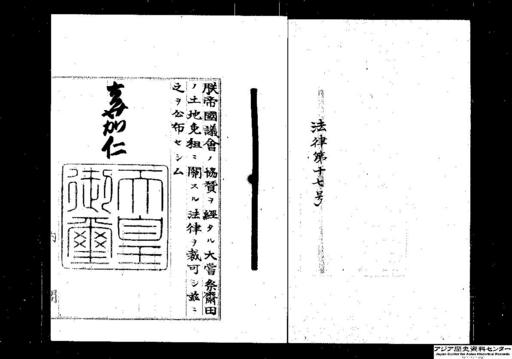 法律第十七号
朕帝國議會ノ協賛ヲ經タル大嘗祭齋田
ノ土地免租ニ關スル法律ヲ裁可シ茲ニ
之ヲ公布セシム
嘉仁
天皇御璽
内閣
アジア歴史資料センター
Japan Center for Asian Historical Records